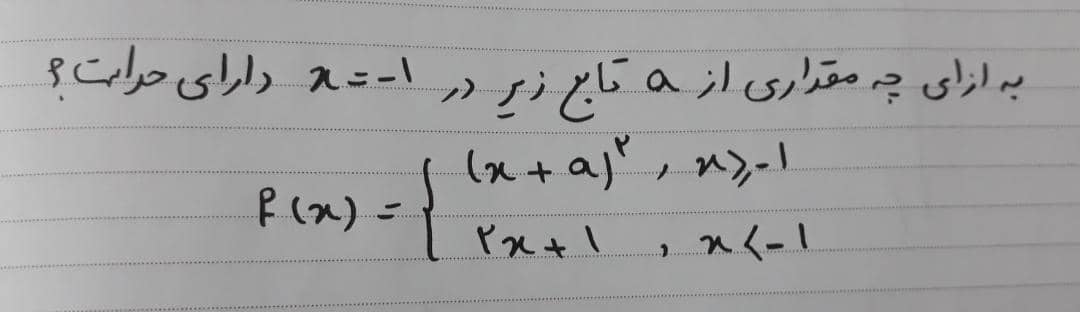 به ازای چه مقداری از a تابع زیر در x = -۱ دارای حد است؟
f(x) = { (x + a)^۲ , x ≥ -۱
۲x + ۱ , x < -۱